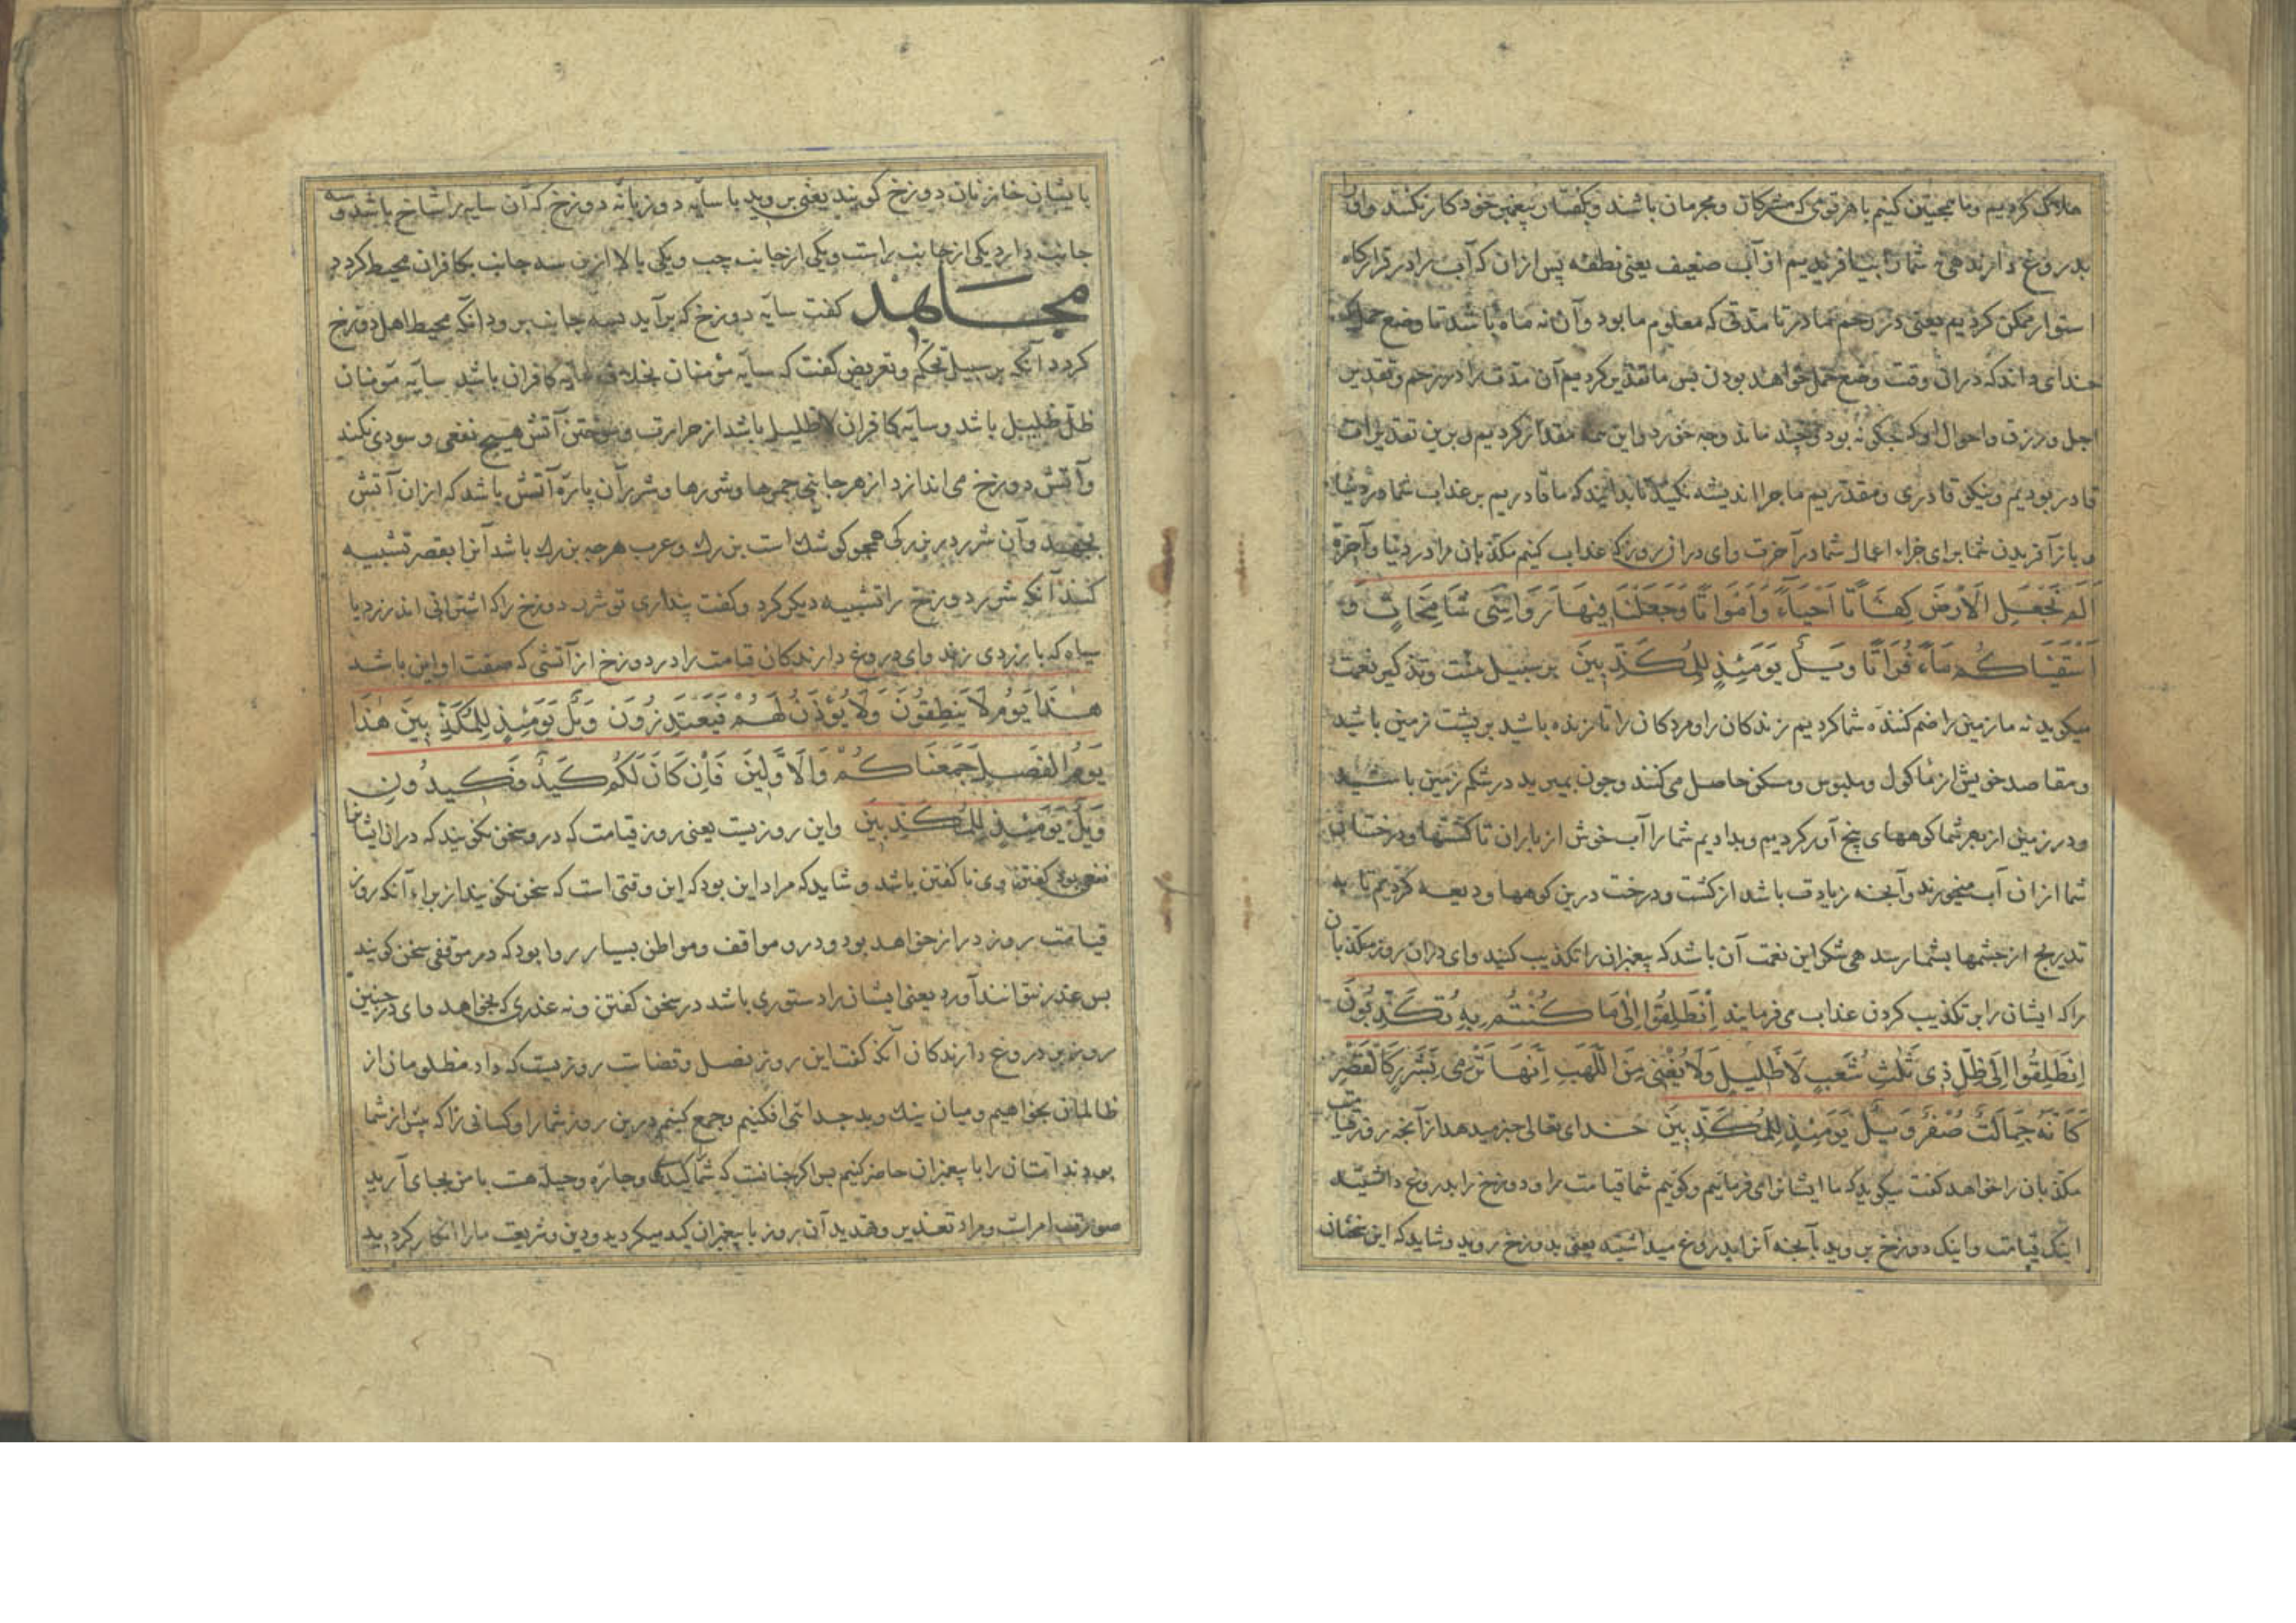 هلاک کردیم وما همچنین کنیم با هر قومی که مشرکان ومجرمان باشند وبکفتار پیغمبر خود کار نکنند واورا
بدروغ دارند هی نه شمارا بیافریدیم از آب ضعیف یعنی نطفه پس ازان که آب را در قرارکاه
استوار ممکن کردیم یعنی در رحم مادر تا مدتی که معلوم ما بود وآن نه ماه باشد تا وضع حمل که
خدای داند که دران وقت وضع حمل خواهد بودن پس ما تقدیر کردیم آن مدت را در رحم وتقدیر
اجل ورزق واحوال او که چکونه بود وچند ماند وچه خورد واین همه مقدار کردیم وبرین تقدیرات
قادر بودیم ونیکو قادری ومقدریم ما چرا اندیشه نکنید تا بدانید که ما قادریم بر عذاب شما در دنیا
وباز آفریدن شما برای جزاء اعمال شما در آخرت وای دران روز که عذاب کنیم مکذبان را در دنیا وآخرة
اَلَم نَجْعَلِ الْاَرْضَ كِفَاتًا اَحْيَاءً وَاَمْوَاتًا وَجَعَلْنَا فِيْهَا رَوَاسِىَ شَامِخَاتٍ وَ
اَسْقَيْنَاكُمْ مَاءً فُرَاتًا وَيْلٌ يَوْمَئِذٍ لِلْمُكَذِّبِينَ بر سبیل منت وتذکیر نعمت
میکوید نه ما زمین را ضم کننده شما کردیم زندکان را ومردکان را تا زنده باشید بر پشت زمین باشید
ومقاصد خویش از ماکول وملبوس ومسکن حاصل می کنند وچون بمیرید در شکم زمین باشید
ودر زمین از بهر شما کوههای پنج آور کردیم وبدادیم شما را آب خوش از باران تا کشتها ودرختان
شما ازان آب میخورند وآنچه زیادت باشد از کشت ودرخت درین کوهها ودیعه کردیم تا به
تدریج از چشمها بشما رسد هی شکر این نعمت آن باشد که پیغمبران را تکذیب کنید وای دران روز مکذبان
را که ایشان را بر تکذیب کردن عذاب می فرمایند اِنْطَلِقُوا اِلٰى مَا كُنْتُمْ بِهِ تُكَذِّبُونَ
اِنْطَلِقُوا اِلَى ظِلٍّ ذِى ثَلٰثِ شُعَبٍ لَا ظَلِيلٍ وَلَا يُغْنِى مِنَ اللَّهَبِ اِنَّهَا تَرْمِى بِشَرَرٍ كَالْقَصْرِ
كَاَنَّهُ جِمَالَتٌ صُفْرٌ وَيْلٌ يَوْمَئِذٍ لِلْمُكَذِّبِينَ خدای تعالی خبر میدهد از آنچه روز قیامت
مکذبان را خواهد کفت میکوید که ما ایشان را می فرماییم وکوییم شما قیامت را ودوزخ را بدروغ داشتید
اینک قیامت واینک دوزخ بروید بآنچه آنرا بدروغ میداشتید یعنی بدوزخ روید وشاید که این سخنان
بایشان خازنان دوزخ کویند یعنی بروید با سایه دوزبانه دوزخ که آن سایه را شاخ باشد وسه
جانب دارد یکی از جانب راست ویکی از جانب چپ ویکی بالا ازین سه جانب بکافران محیط کردد
مجاهد کفت سایه دوزخ که برآید بسه جانب برود آنکه محیط اهل دوزخ
کردد آنکه بر سبیل تحکم وتعریض کفت که سایه مؤمنان بخلاف سایه کافران باشد سایه مؤمنان
ظل ظلیل باشد وسایه کافران لا ظلیل باشد از حرارت وسوختن آتش هیچ نفعی وسودی نکند
وآتش دوزخ می اندازد از هر جانبی جمرها وشررها وشرر آن پاره آتش باشد که ازان آتش
بجهد وآن شرر در بزرکی همچو کوشک است بزرک وعرب هرچه بزرک باشد آنرا بقصر تشبیه
کنند آنکه شرر دوزخ را تشبیه دیکر کرد وکفت پنداری تو شرر دوزخ را که اشترانی اند زرد یا
سیاه که با زردی زند وای دروغ دارندکان قیامت را در دوزخ از آتشی که صفت او این باشد
هٰذَا يَوْمُ لَا يَنْطِقُونَ وَلَا يُؤْذَنُ لَهُمْ فَيَعْتَذِرُونَ وَيْلٌ يَوْمَئِذٍ لِلْمُكَذِّبِينَ هٰذَا
يَوْمُ الْفَصْلِ جَمَعْنَاكُمْ وَالْاَوَّلِينَ فَاِنْ كَانَ لَكُمْ كَيْدٌ فَكِيدُونِ
وَيْلٌ يَوْمَئِذٍ لِلْمُكَذِّبِينَ واین روزیست یعنی روز قیامت که درو سخن نکویند که دران ایشانرا
نفع بود کفتن وی نا کفتن باشد وشاید که مراد این بود که این وقتی است که سخن نکویند از براء آنکه روز
قیامت روز دراز خواهد بود ودرو مواقف ومواطن بسیار روا بود که در موقفی سخن کویند
پس عذر نتوانند آورد یعنی ایشان را دستوری باشد در سخن کفتن ونه عذری که بخواهد وای در چنین
روز بر دروغ دارندکان آنکه کفت این روز فصل وقضاست روزیست که داد مظلومان از
ظالمان بخواهیم ومیان نیک وبد جدائی افکنیم وجمع کنیم درین روز شما را وکسانی را که پیش از شما
بودند امتان را با پیغمبران حاضر کنیم پس اکر چنانست که شما را کیدی وچاره وحیله هست با من بجای آرید
صورتش امرات ومراد تعذیر وتهدید آن روز با پیغمبران کید میکردید ودین وشریعت ما را انکار کردید